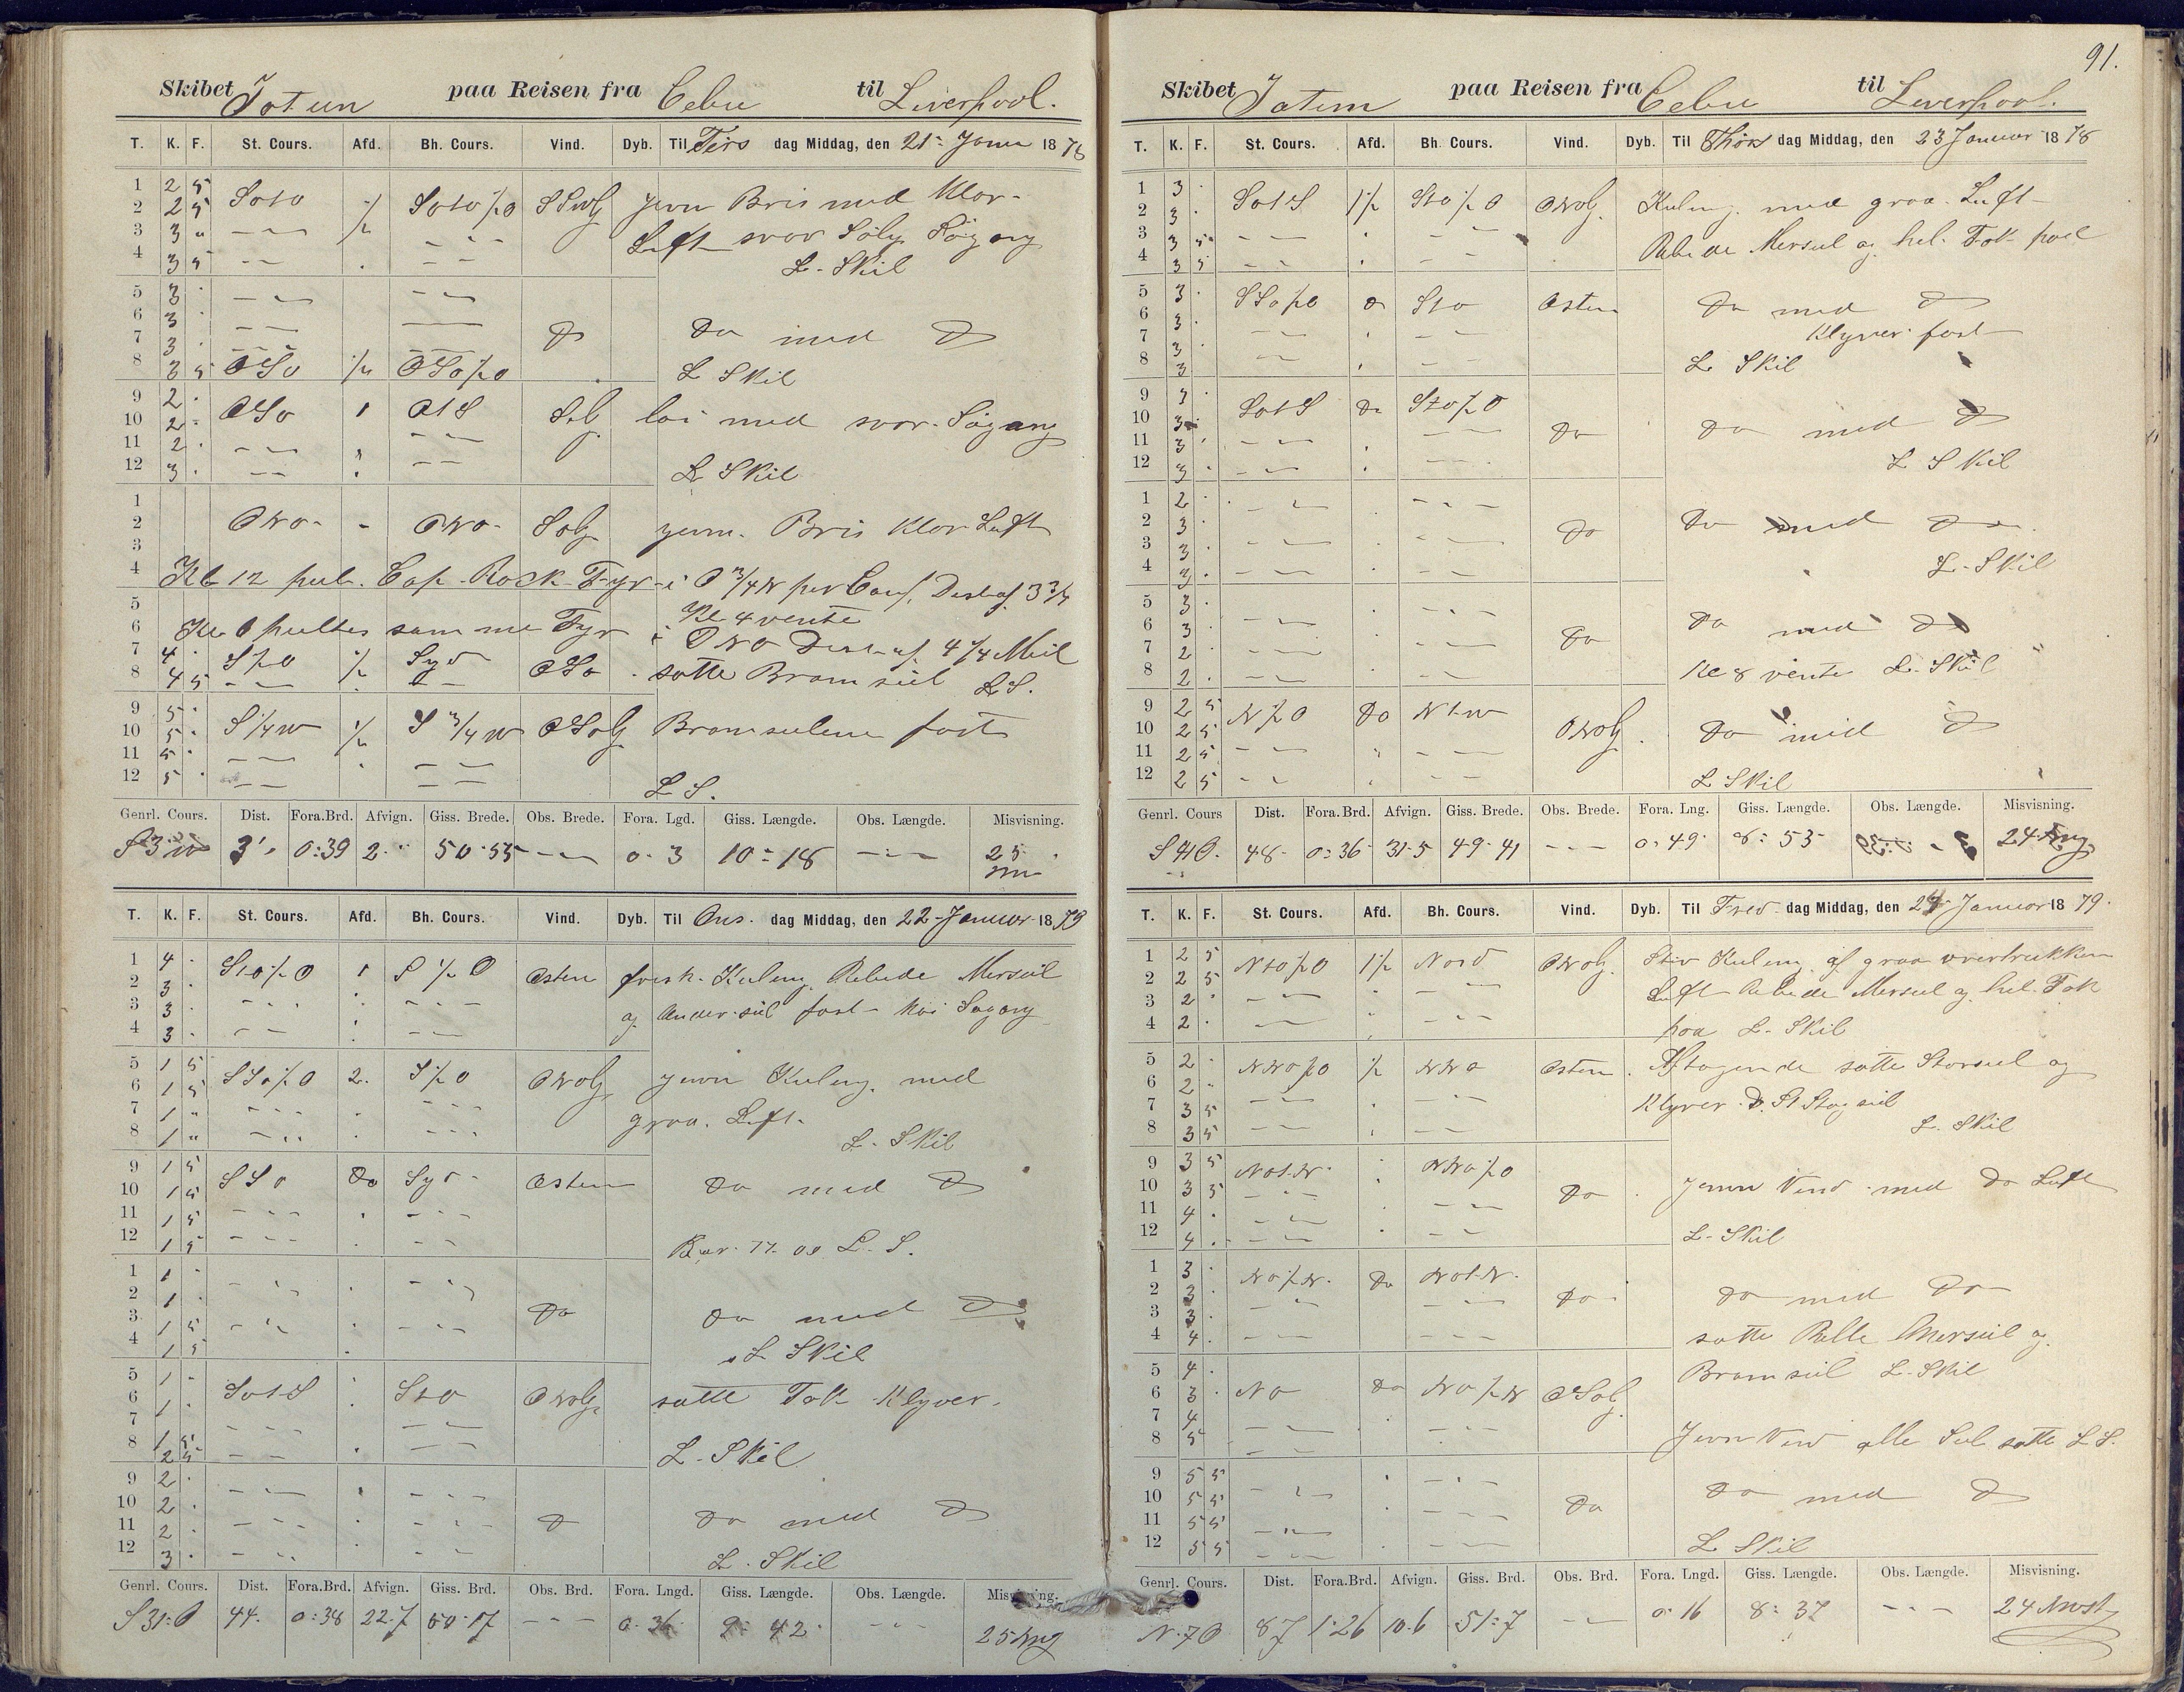 91.
Skibet Jotun paa Reisen fra Cebu til Liverpool.
T. K. F. St. Cours. Afd. Bh. Cours. Vind. Dyb. Til Tirs dag Middag, den 21 Janu 1878
1 2 5 SOtO SOtO½O jevn Bris med Klar
2 2 5
3 3 Luft svær Sølig Søgang
4 3 5 L. Skil
5 3
6 3
7 3 Do Do med Do
8 3 5 OSO ½ OSO½O L Skil
9 2
10 2 OSO 1 OtS med svær Søgang
11 2
12 3 L Skil
1
2 ONO ONO SOlg jevn Bris Klar Luft
3
4 Kl 12 peil. Cap Rock Fyr i O¾N per Comp. Dist af 3¾
5 Kl 4 vente
6 Kl 6 peiltes samme Fyr i ONO Dist af 4¼ Mil
7 4 S½O ½ Syd OSO satte Bramseil L S.
8 4 5
9 5
10 5 S¼W ½ S¾W OSOlg Bramseilene fast
11 5
12 5 L S.
Genrl. Cours. Dist. Fora.Brd. Afvign. Giss. Brede. Obs. Brede. Fora. Lgd. Giss. Længde. Obs. Længde. Misvisning.
S 3 W 0:39 2 50-55 — 0. 3 10-18 — 25
T. K. F. St. Cours. Afd. Bh. Cours. Vind. Dyb. Til Ons. dag Middag, den 22 Januar 1879
1 4 StO½O 1 S½O Osten frisk Kuling Rebede Merseil
2 3
3 3 og Underseil fast Søgang
4 3
5 1 5
6 1 5 SSO½O 2. S½O ONOlg jevn Kuling med
7 1 graa Luft.
8 1 L. Skil
9 1 5
10 1 5 SSO Do Syd Osten Do med Do
11 1 5
12 1 5 L. S.
1 1
2 1
3 1 5 Do Do med Do
4 1 5 L Skil
5 1
6 1 SOtS StO ONOlg satte Fok Klyver.
7 1 5
8 2 5 L. Skil
9 2
10 2
11 2 Do Do med Do
12 3 L. Skil
Genrl. Cours. Dist. Fora.Brd. Afvign. Giss. Brd. Obs. Brd. Fora. Lngd. Giss. Længde. Obs. Længde. Misvisning.
S 31 O 44. 0:38 22.7 50-17 — 0. 36 9: 42 — 25
Skibet Jotun paa Reisen fra Cebu til Liverpool.
T. K. F. St. Cours. Afd. Bh. Cours. Vind. Dyb. Til Thors dag Middag, den 23 Januar 1878
1 3 SOtS 1½ StO½O ONOlg. Kuling med graa Luft
2 3
3 3 5 Rebede Merseil og hel Fok
4 3 5
5 3
6 3 SSO½O Do StO Osten Do med Do
7 3 Klyver fast
8 3 L Skil
9 3
10 3 SOtS Do StO½O
11 3 Do Do med Do
12 3 L Skil
1 2
2 3 Do Do med Do
3 3
4 3 L. Skil
5 3
6 3 Do Do med Do
7 2
8 2 Kl 8 vente L. Skil
9 2 5
10 2 5 N½O Do NtW ONOlg Do med Do
11 2 5
12 2 5 L Skil
Genrl. Cours Dist. Fora.Brd. Afvign. Giss. Brede. Obs. Brede. Fora. Lng. Giss. Længde. Obs. Længde. Misvisning.
S 41 O. 48. 0:36 31-5 49-41 — 0. 49 8: 53 24
T. K. F. St. Cours. Afd. Bh. Cours. Vind. Dyb. Til Fred dag Middag, den 24 Januar 1879.
1 2 5 NtO½O 1½ Nord ONOlg. Stiv Kuling af graa overtrukken
2 2 5
3 2 Luft Rebede Merseil og hel Fok
4 2 paa L. Skil
5 2
6 2 NNO½O ½ NNO Osten Aftagende satte Storseil og
7 3 5 Klyver
8 3 5 L. Skil
9 3 5
10 3 5 NOtN NNO½O Do Jevn Vind med Do Luft
11 4
12 4 L. Skil
1 3
2 3 NO½N. Do NOtN. Do Do med Do
3 3
4 4 satte Merseil og
5 4 Bramseil L. Skil
6 3 NO Do NO½N OSOlg
7 4
8 5 Jevn Vind alle Seil satte L S.
9 5 5
10 5 5 Do Do med Do
11 5 5
12 5 5 L Skil
Genrl. Cours. Dist. Fora.Brd. Afvign. Giss. Brd. Obs. Brd. Fora. Lngd. Giss. Længde. Obs. Længde. Misvisning.
N. 7 O 87 1:26 10.6 51:7 — 0: 16 8: 37 — 24